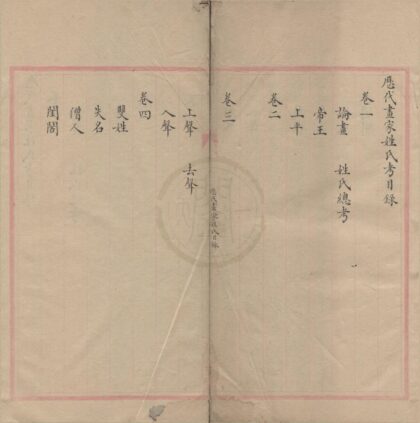 歷代畫家姓氏考目錄
卷一
論畫　姓氏總考
帝王
上平
卷二
歷代畫家姓氏目錄
卷三
上聲　去聲
入聲
卷四
雙姓
失名
僧人
閨閣